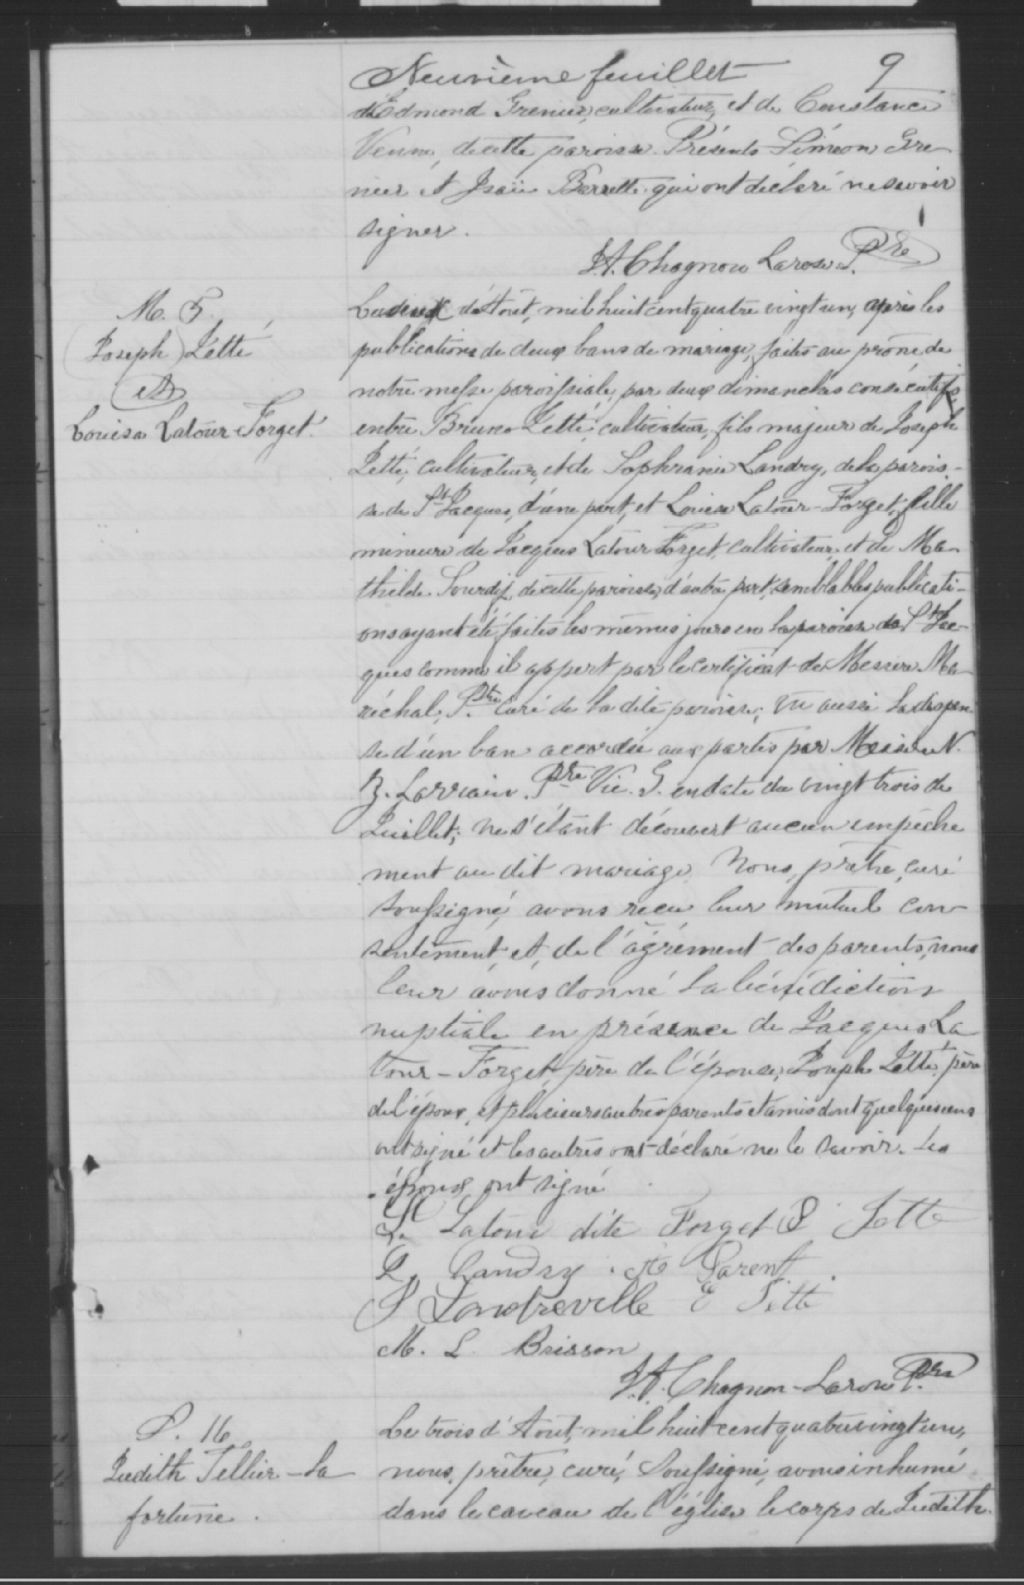 Neuvième feuillet 9
d'Edmond Grenier, cultivateur, et de Constance
Venne, de cette paroisse. Présents Siméon Gre-
nier et Isaïe Berrette qui ont déclaré ne savoir
signer.
J.A. Chagnon Larose P.tre
M. 5.
Joseph Jetté
et
Louisa Latour-Forget.
Le deux d'Août, mil huit cent quatre vingt un, après les
publications de deux bans de mariage, faites au prône de
notre messe paroissiale, par deux dimanches consécutifs
entre Bruno Jetté, cultivateur, fils majeur de Joseph
Jetté, cultivateur, et de Sophranie Landry, de la parois-
se de St Jacques, d'une part, et Louisa Latour-Forget, fille
mineure de Jacques Latour-Forget, cultivateur, et de Ma-
thilde Sourdif, de cette paroisse, d'autre part, semblables publicati-
ons ayant été faites les mêmes jours en la paroisse de St Jac-
ques comme il appert par le certificat de Messire Ma-
réchal, Ptre Curé de la dite paroisse; vu aussi la dispen-
se d'un ban accordée aux parties par Messire N.
Z. Lorrain Ptre Vic. G. en date du vingt trois de
Juillet; ne s'étant découvert aucun empêche
ment au dit mariage, Nous, prêtre, curé
soussigné, avons reçu leur mutuel con-
sentement, et, de l'agrément des parents, nous
leur avons donné la bénédiction
nuptiale en présence de Jacques La
tour-Forget, père de l'épouse, Joseph Jetté, père
de l'époux, et plusieurs autres parents et amis dont quelques uns
ont signé et les autres ont déclaré ne le savoir. Les
époux ont signé
L. Latour dite Forget B Jetté
L. Landry . Parent
P Landreville E Jetté
M. L. Brisson
J.A. Chagnon-Larose P.tre
S. 16
Judith Tellier-La
fortune.
Le trois d'Août, mil huit cent quatre vingt un,
nous, prêtre, curé, soussigné, avons inhumé
dans le caveau de l'église le corps de Judith